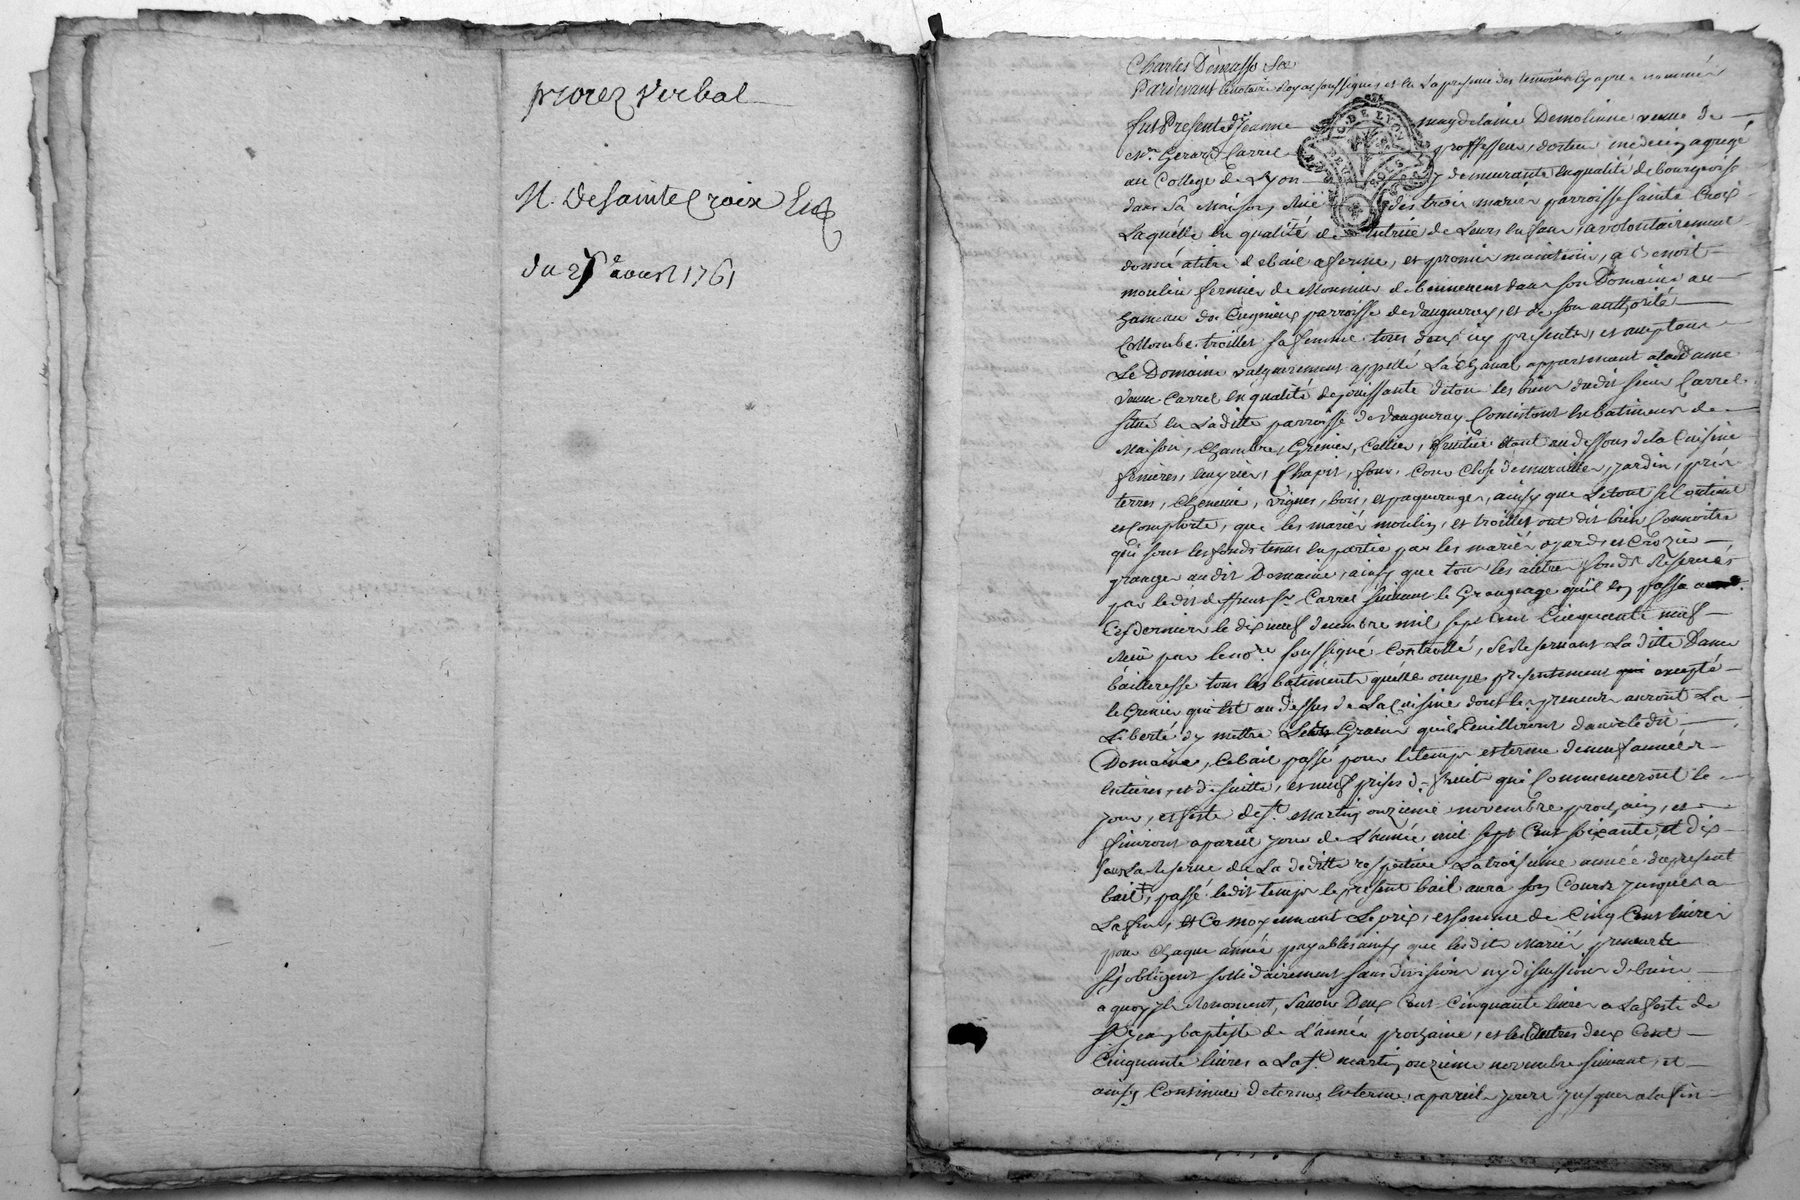 procez verbal
M. De Sainte Croix
du 25e aoust 1761
Charles Demasso
Pardevant le notaire Royal soussignes et en La presence des temoins cy apres nommés
G. DE LYON
fut Presente d.e Jeanne magdelaine Demolienne veuve de
M.r Gerard Carrel proffesseur, docteur medecin agregé
au College de Lyon y demeurante en qualité de bourgeoise
dans Sa Maison, Rue des trois maries parroisse sainte Croix
Laquelle en qualité de tutrice de Leurs enfans, a volontairement
donné a titre de bail a ferme, et promis maintenir, a Benoit
moulin fermier de Monsieur de dans son Domaine au
hameau de parroisse de Vaugneray, et de son authorité
Collombe troillet sa femme tous deux icy presents, et acceptans
Le Domaine vulgairement appellé La Chanal appartenant a lad. dame
veuve Carrel en qualité de jouissante de tous les biens dudit sieur Carrel
situé en Laditte parroisse de Vaugneray Consistant en batiments de
Maison, Chambres, Grenier, Cellier, fruitier étant au dessous de la Cuisine
fenieres, ecuries, Chapit, four, Cour Close de murailles, jardin, prés
terres, Cheneviere, vignes, bois, et paquerages, ainsy que Le tout se Contient
et Comporte, que les mariés moulin, et troillet ont dit bien Connoitre
qui sont les fonds tenus en partie par les mariés et Crozier
granger audit Domaine, ainsy que tous les autres fonds Reservés
par ledit deffunt Sr. Carrel suivant le Grangeage qu'il en passa
le dix neuf decembre mil sept Cent Cinquante neuf
Reçu par le no.re soussigné Controllé, Se Reservant La ditte Dame
bailleresse tous les bâtiments qu'elle occupe presentement excepté
le Grenier qui est au dessus de La Cuisine dont les preneurs auront La
Liberté d'y mettre Les Grains qu'ils Cueilliront dans le dit
Domaine, Ce bail passé pour le temps et terme de neuf années
entieres, et de suitte, et neuf prises de fruits qui Commenceront le
jour, et feste de St. Martin onzieme novembre prochain, et
finiront a pareil jour de L'année mil sept Cent soixante et dix
sous La Reserve de La deditte respective La troisieme année du present
bail, passé ledit temps le present bail aura son Cours jusques a
La fin, Et Ce moyennant Le prix, et somme de Cinq Cent livres
pour Chaque année payables ainsy que lesdits Mariés preneurs
s'y obligent sollidairement sans division ny discussion de biens
a quoy ils Renoncent, Savoir Deux Cent Cinquante livres a La feste de
St Jean baptiste de L'année prochaine, et les autres deux Cent
Cinquante livres a La St. martin onzieme novembre suivant, et
ainsy Continuer de termes en termes, a pareils jours jusques a la fin